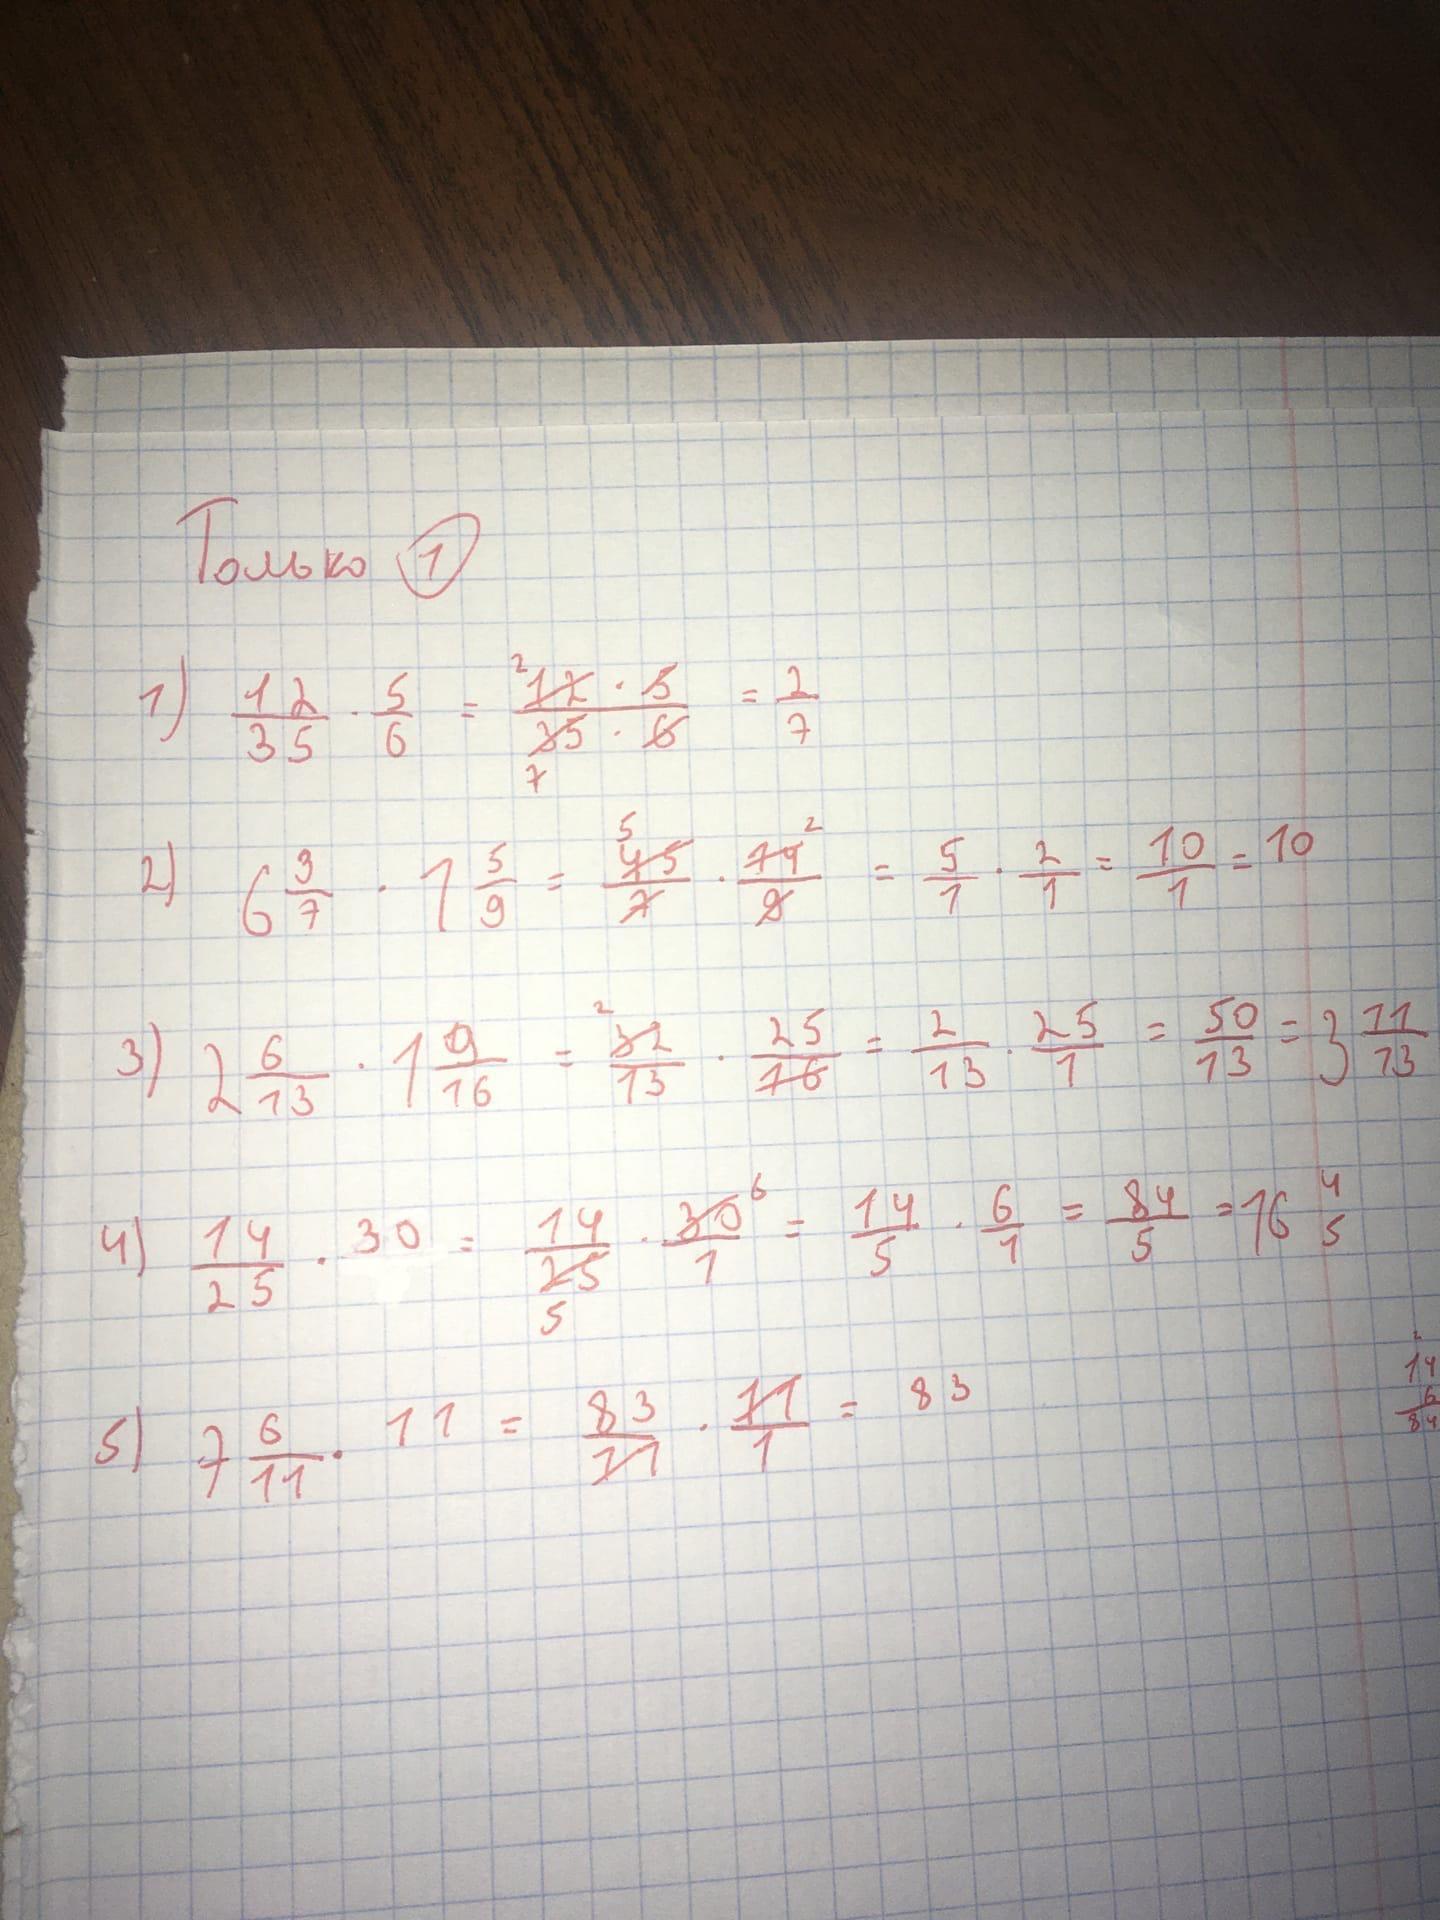 Только ①
1) 12/35 · 5/6 = ²12 · 5 / 35 · 6 ₇ = 2/7
2) 6 3/7 · 1 5/9 = ⁵45/7 · 14²/9 = 5/1 · 2/1 = 10/1 = 10
3) 2 6/13 · 1 9/16 = ²32/13 · 25/16 = 2/13 · 25/1 = 50/13 = 3 11/13
4) 14/25 · 30 = 14/25 ₅ · 30⁶/1 = 14/5 · 6/1 = 84/5 = 16 4/5
5) 7 6/11 · 11 = 83/11 · 11/1 = 83
2
14
6
84